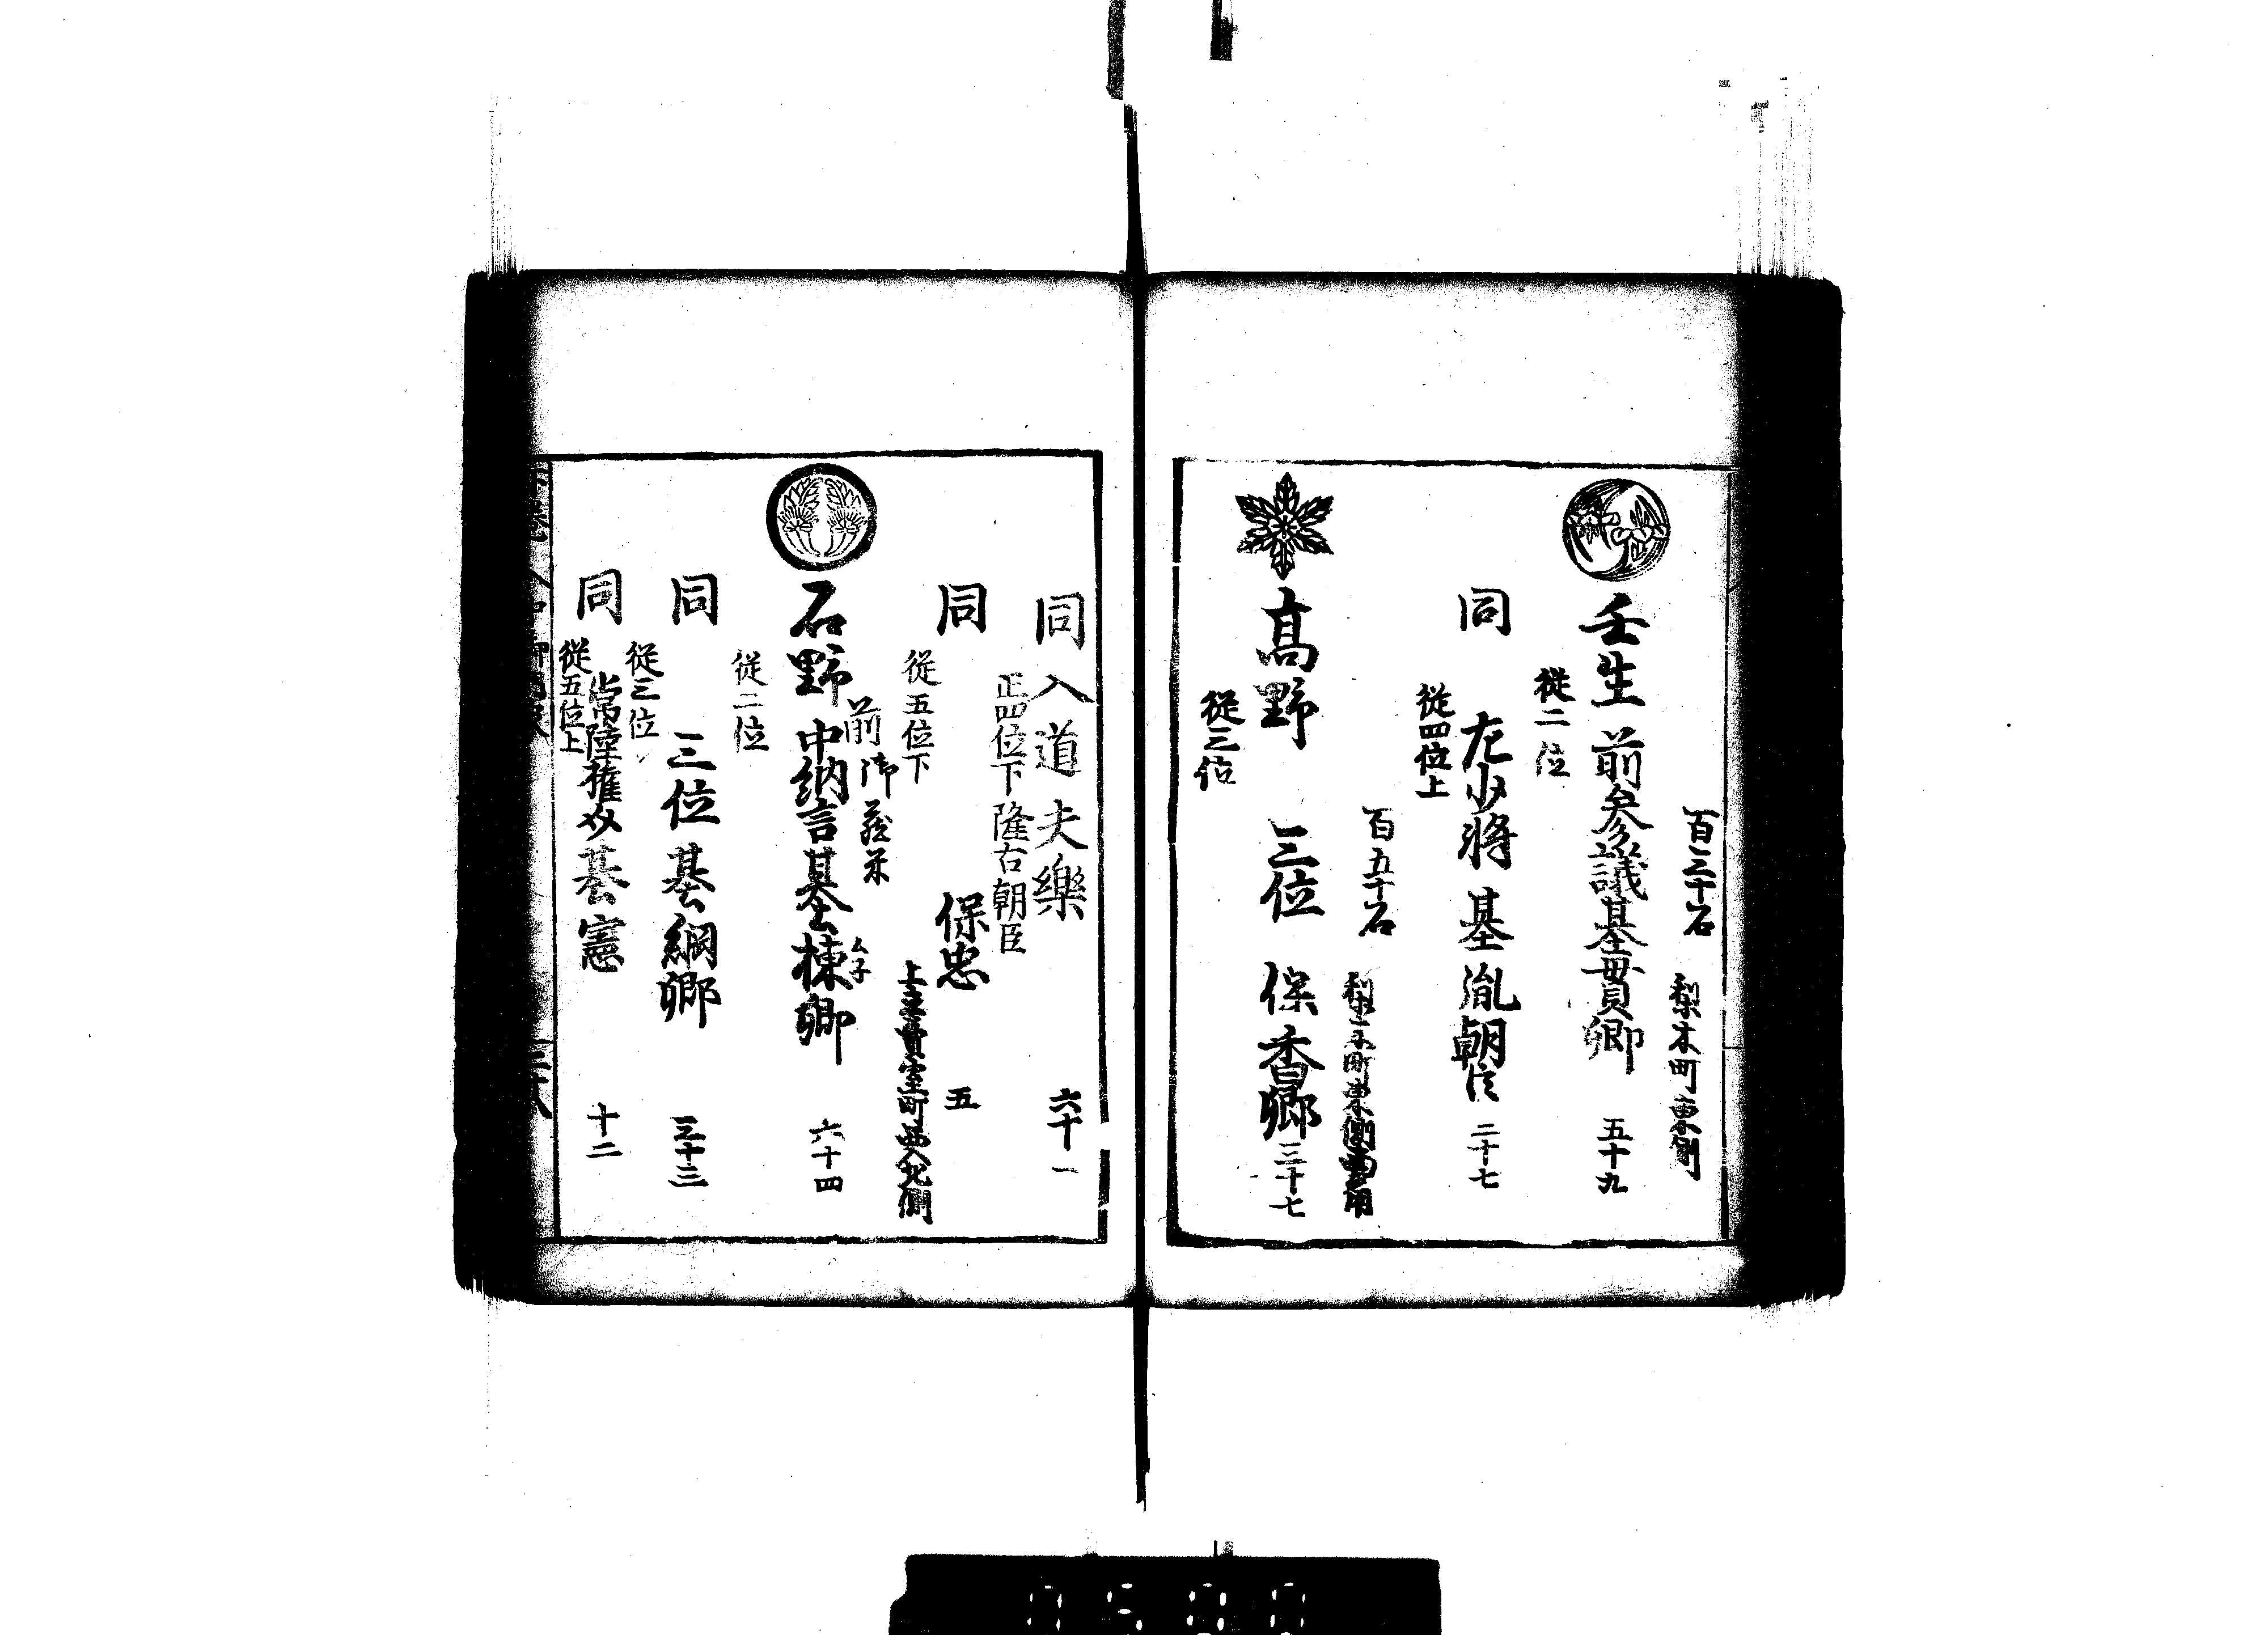 百三十石　梨木町東側
壬生　前参議基貫卿　五十九
従二位
同　左少將基胤朝臣　二十七
従四位上
百五十石　梨木町東側
高野　三位　保香卿　三十七
従三位
同入道夫樂　六十一
正四位下隆古朝臣
同　保忠　五
従五位下
上立賣室町西入北側
前御蔵米
石野　中納言基棟卿　六十四
従二位
同　三位基綱卿　三十三
従三位
同　常陸権介基憲　十二
従五位上